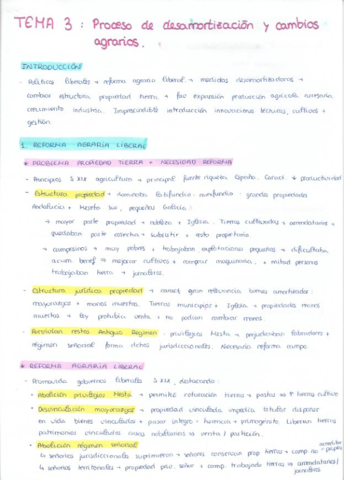 TEMA 3 : Proceso de desamortización y cambios
agrarios.
INTRODUCCIÓN
- Políticas liberales → reforma agraria liberal → medidas desamortizadoras →
cambiar estructura propiedad tierra → fue expansión producción agrícola
crecimiento industria. Imprescindible introducción innovaciones técnicas, cultivos +
gestión.
1. REFORMA AGRARIA LIBERAL
* PROBLEMA PROPIEDAD TIERRA + NECESIDAD REFORMA
- Principios S.XIX agricultura → principal fuente riqueza España. Causa ↓ productividad
- Estructura propiedad → dominaban latifundio - minifundio · grandes propiedades
Andalucía + Meseta sur, pequeñas Galicia:
→ mayor parte propiedad → nobleza + Iglesia. Tierras cultivadas → arrendatarios →
quedaban parte cosecha → subsistir + resto propietario.
→ campesinos → muy pobres + trabajaban explotaciones pequeñas → dificultaba
acum. benef → mejorar cultivos + comprar maquinaria, + mitad personas
trabajaban tierra → jornaleros.
- Estructura jurídica propiedad → caract. gran tierras amortizadas:
mayorazgos + manos muertas. Tierras municipios + Iglesia → propiedades manos
muertas → ley prohibía venta + no podían cambiar
- Pervivían restos Antiguo Régimen: privilegios Mesta → perjudicaban labradores +
régimen señorial forma dichas jurisdiccionales. Necesaria reforma campo.
* REFORMA AGRARIA LIBERAL
- Promovida gobiernos liberales S.XIX, destacando:
• Abolición privilegios Mesta → permitió roturación tierras → pastos → ↑ tierras cultivo
• Desvinculación mayorazgos → propiedad vinculada impedía titular disponer
en vida bienes vinculados + pasar íntegro · herencia + primogénito. Libertad tierras
patrimonios vinculados → venta / partición.
• Abolición régimen señorial
↳ señoríos jurisdiccionales suprimieron + señores conservan prop. tierras → camp no → propiet
↳ señoríos territoriales → propiedad priv. señor + camp. trabajando tierras → arrendatarios /
jornaleros